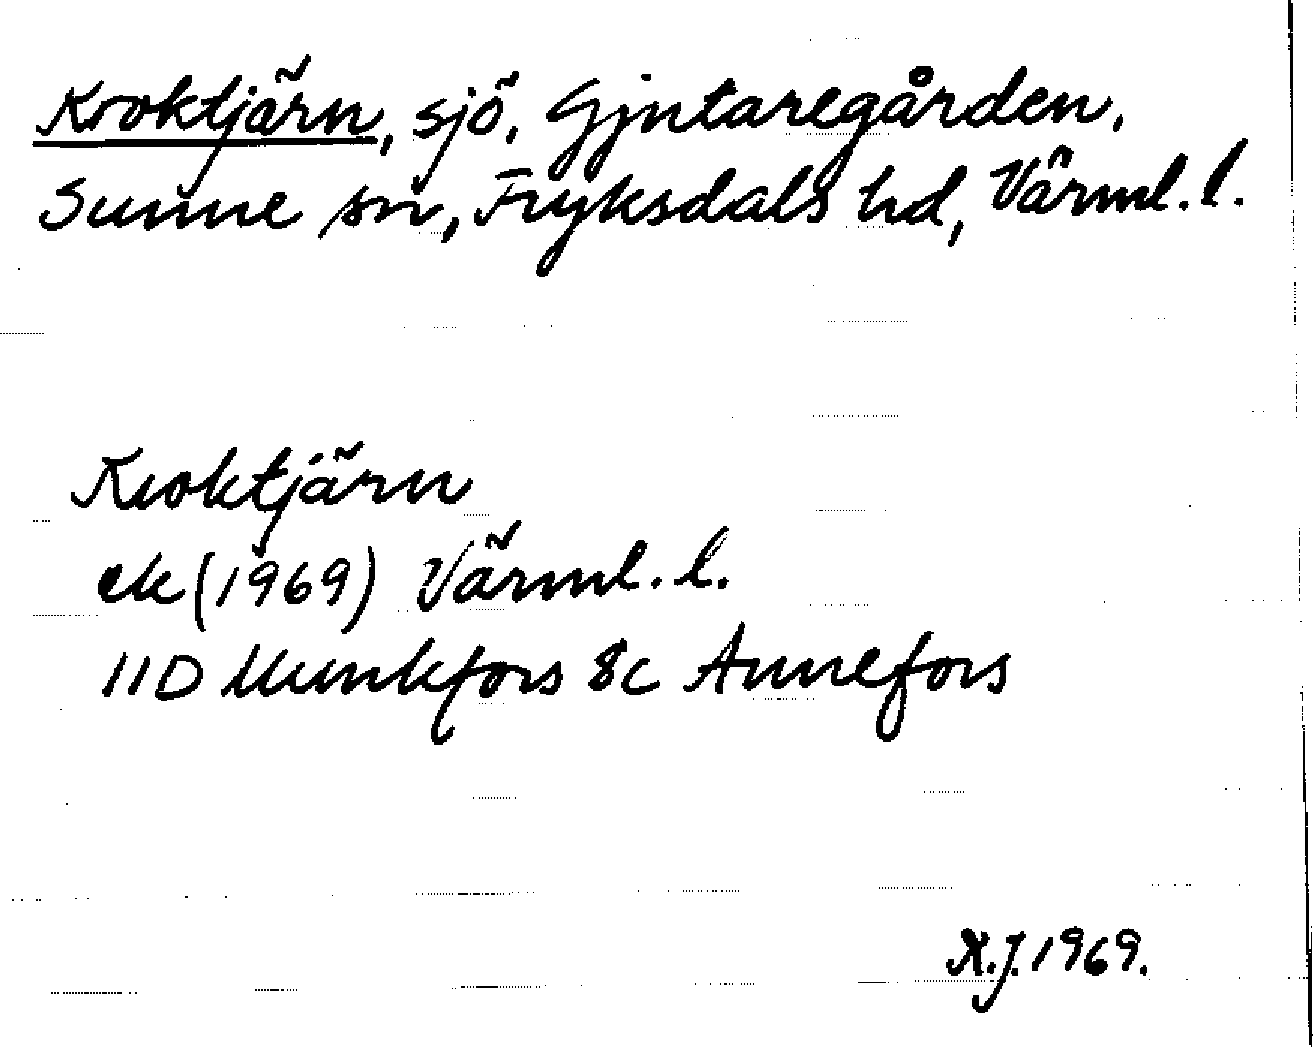 Kroktjärn, sjö, Gjutaregården,
Sunne sn, Fryksdals hd, Värml. l.
Kroktjärn
ek (1969) Värml. l.
11D Munkfors 8c Annefors
K.J. 1969.